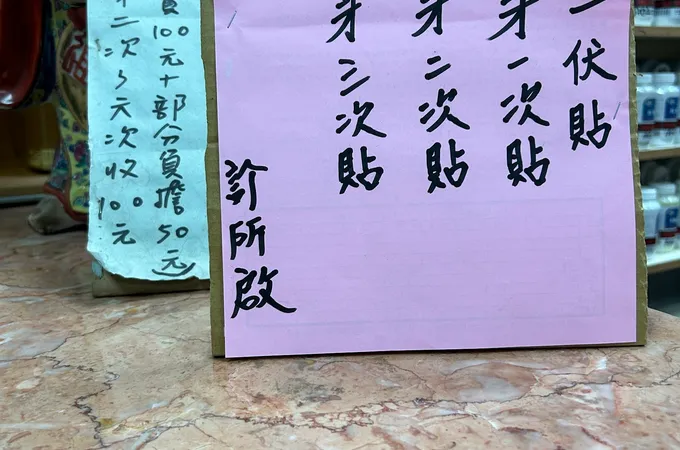 伏貼
第一次貼
第二次貼
第三次貼
診所啟
100元+部分負擔50元)
二次~六次收100元